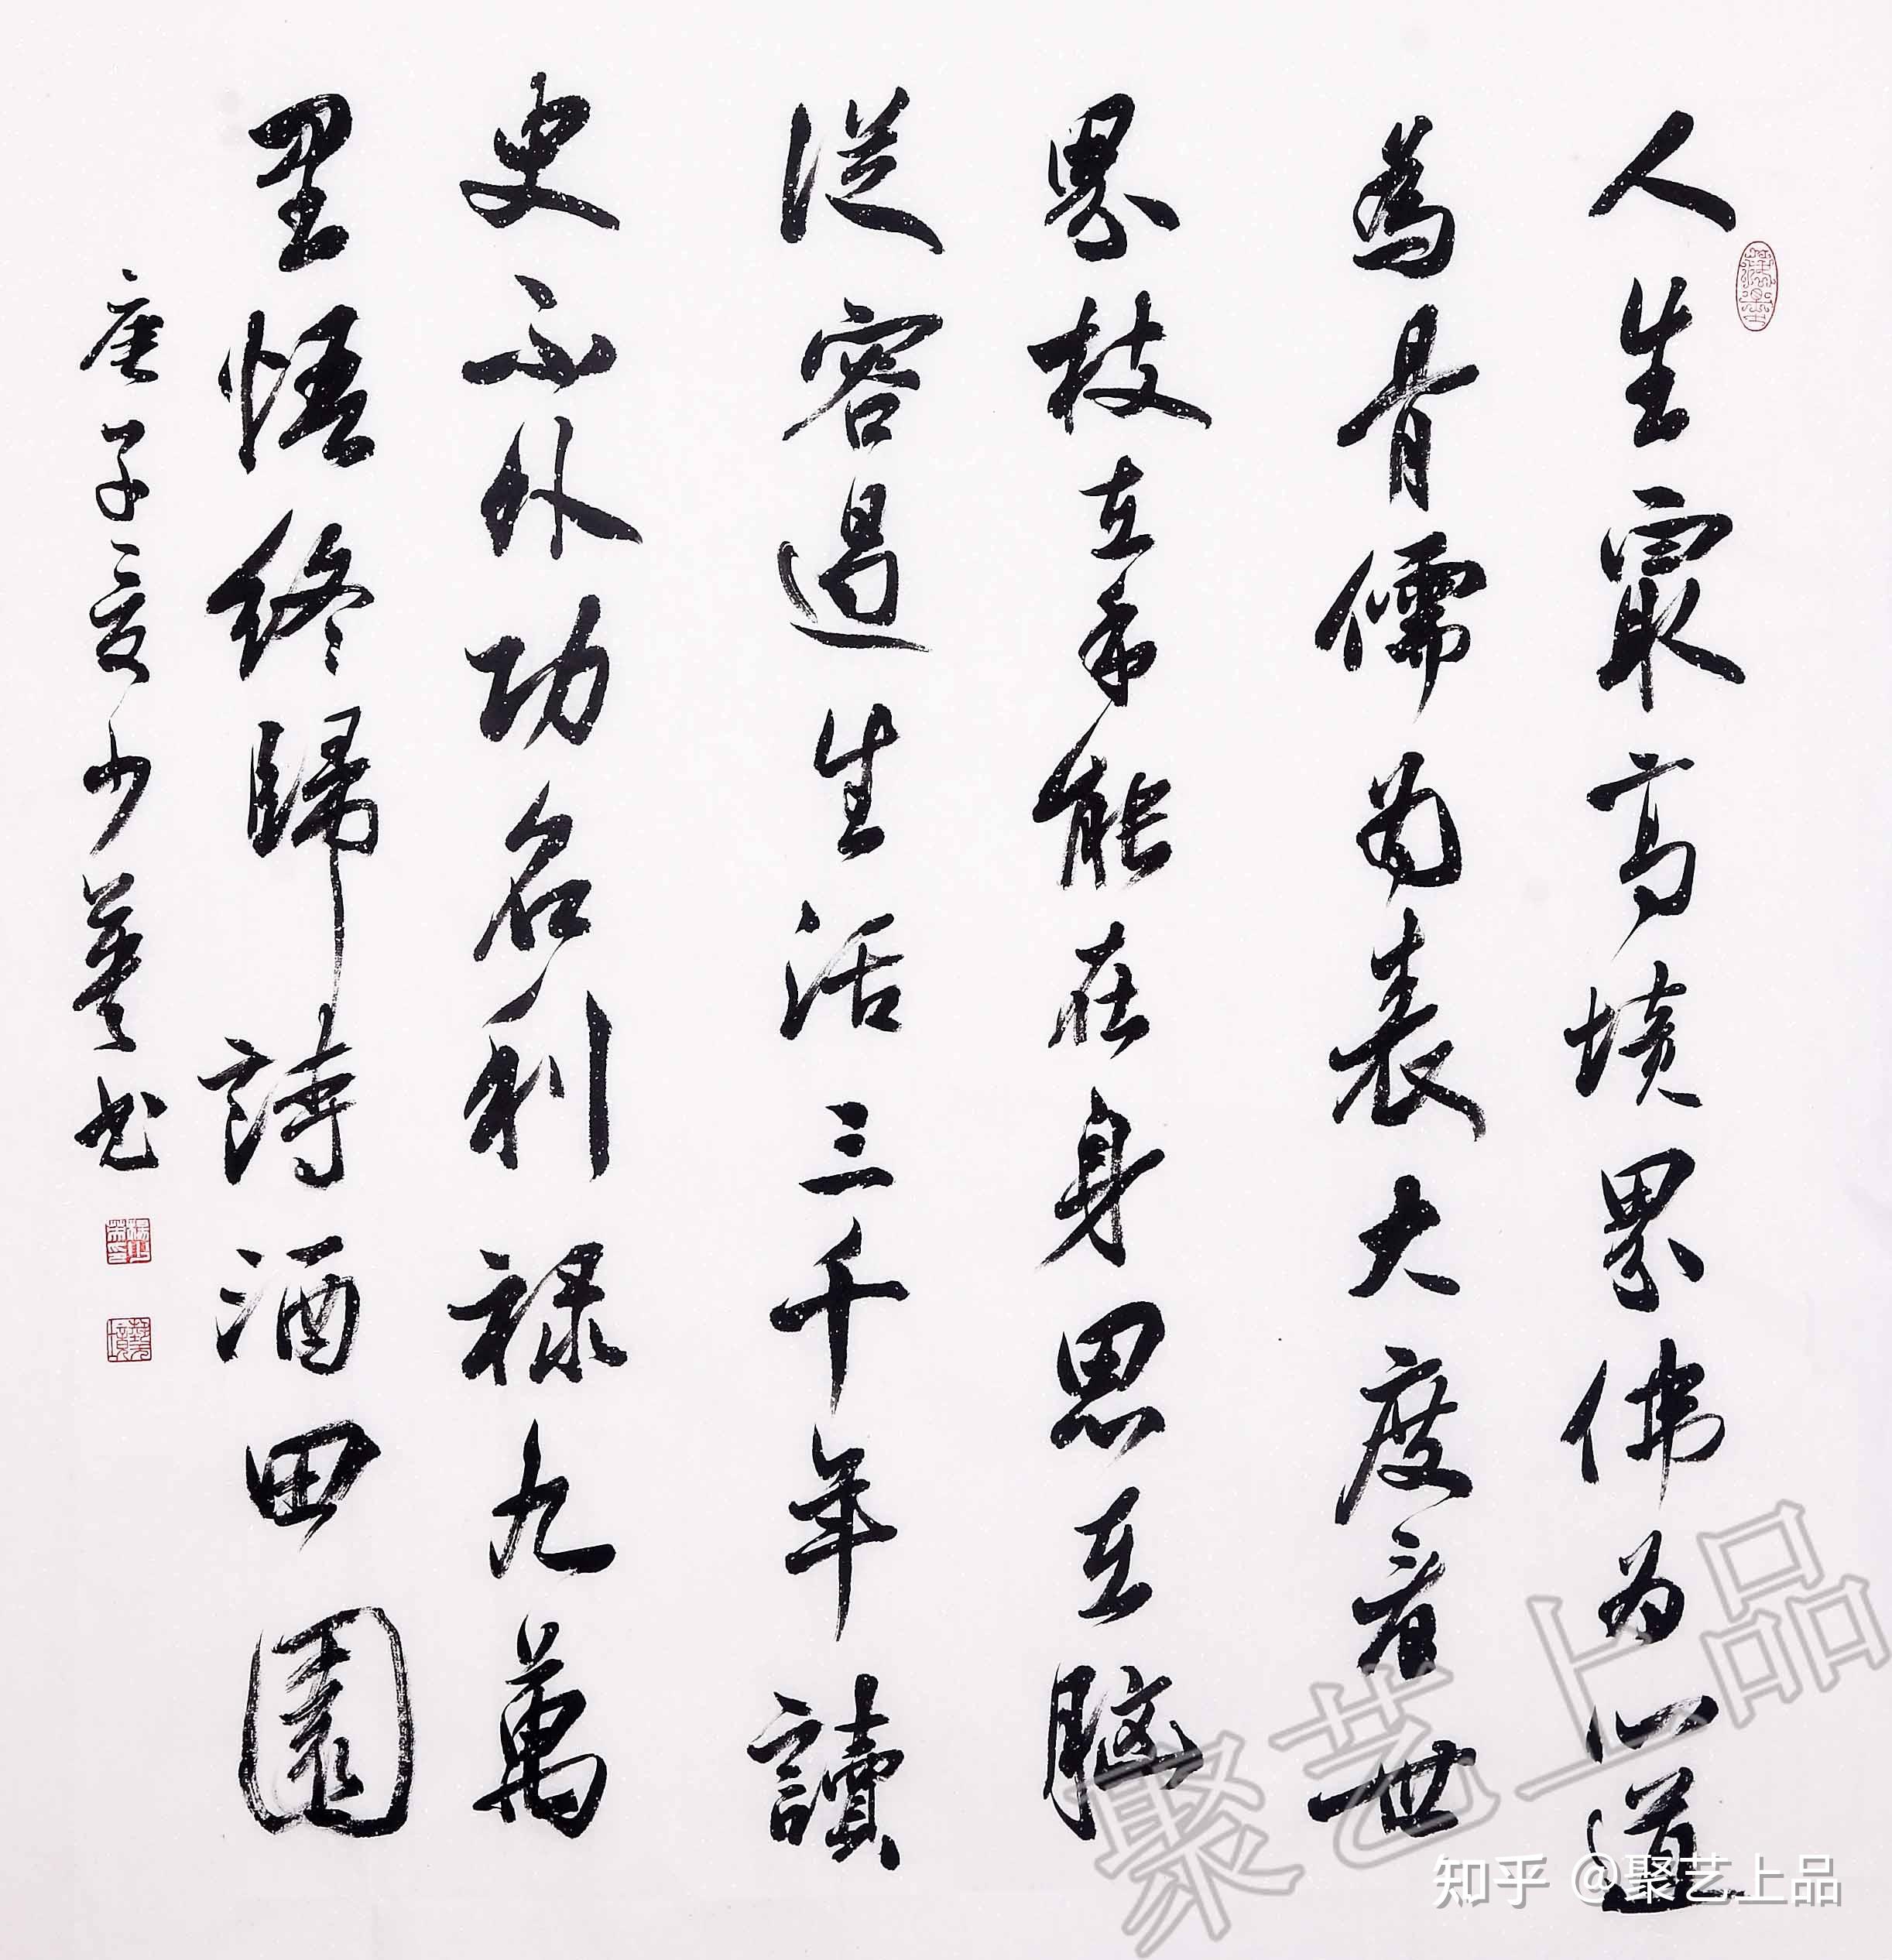 人生最高境界佛为心道
為骨儒为表大度看世
界技在手能在身思在腦
從容過生活三千年讀
史不外功名利禄九萬
里悟終歸詩酒田園
庚子夏少书
聚艺上品
知乎 @聚艺上品